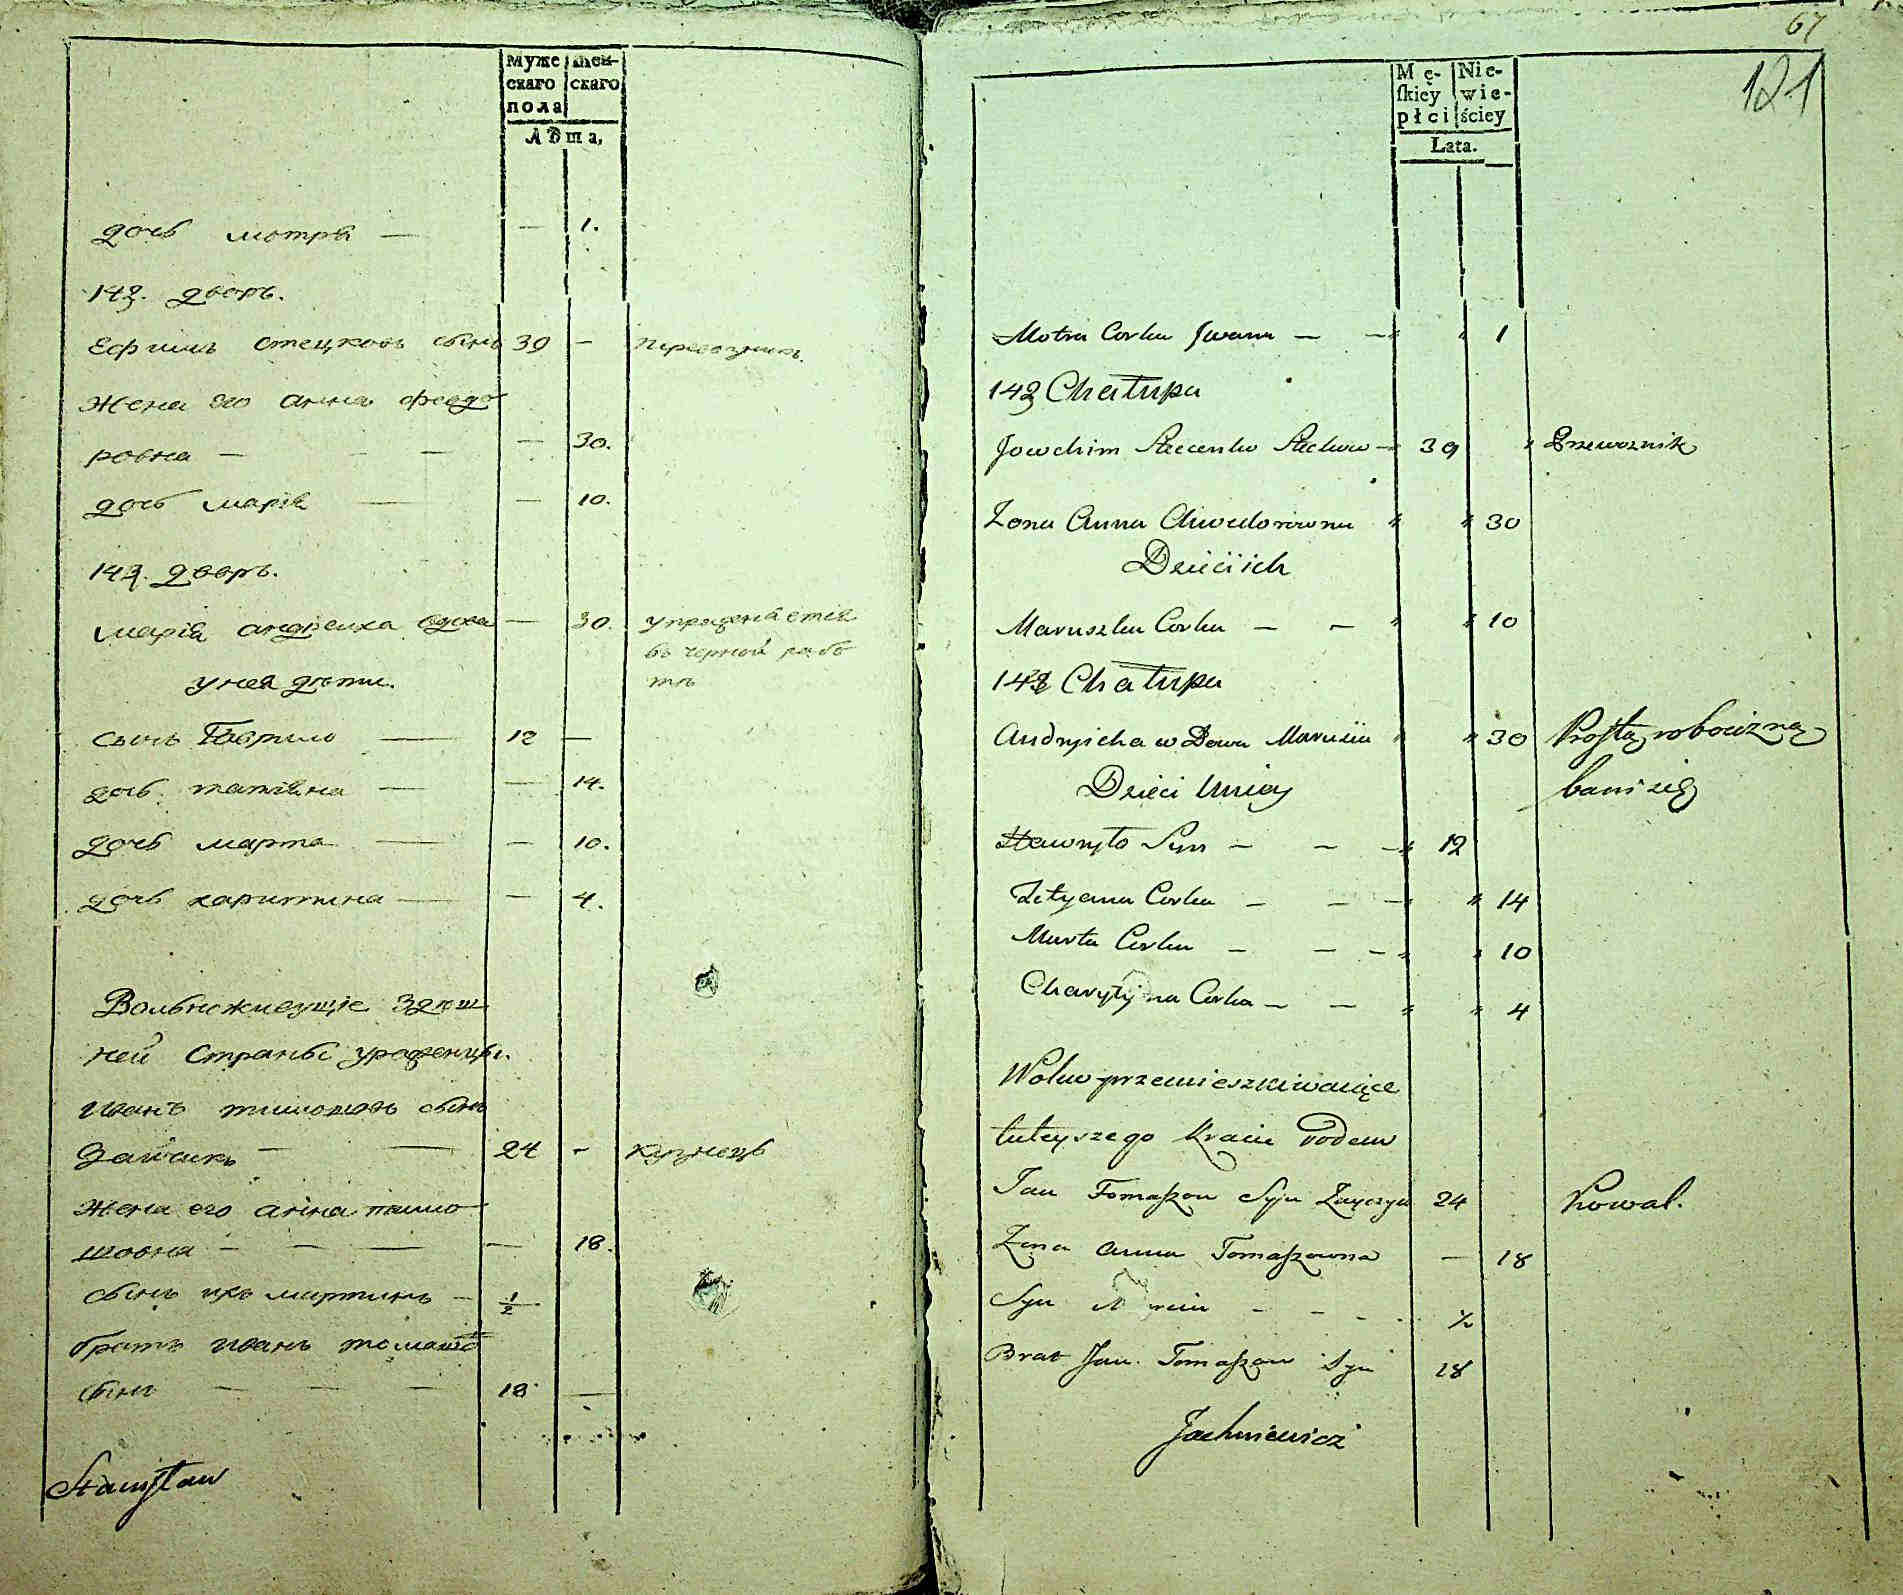 Муже Жен-
скаго скаго
пола
Лѣта,
дочь мотря — — 1.
142. дворъ.
Ефимъ стецковъ сынъ 39 — перевозникъ.
жена его анна федо
ровна — — — — 30.
дочь марія — — 10.
143. дворъ.
марія андреиха вдова — 30. упражняется
въ черной рабо
тѣ
у нея дѣти.
сынъ Гаврило — 12 —
дочь татіяна — — 14.
дочь марта — — 10.
дочь харитина — — 4.
Вольноживущіе здѣш
ней страны уроженцы.
иванъ тимошовъ сынъ
Зайчикъ — — 24 - кузнецъ
жена его анна тимо
шовна — — — — 18.
сынъ ихъ мартинъ — 1/2
братъ иванъ томашов
сынъ — — — 18 —
Stanisław
67
121
Mę- Nie-
skiey wie-
płci ściey
Lata.
Motra Corka Jwana — — " " 1
142 Chałupa
Jowchim Stecenko Steckow — " 39 " Przewoznik
Zona Anna Chwedorowna " " 30
Dzieci ich
Maruszka Corka — — " " 10
143 Chałupa
Andryicha wDowa Marusia " " 30 Prostą robocizną
bawi się
Dzieci Uniey
Hawryło Syn — — — " 12
Tetyanna Corka — — — " 14
Marta Corka — — — " " 10
Charytyna Corka — — " " 4
Wolno przemieszkiwaiące
tuteyszego Kraiu rodem
Jan Tomaszow Syn Zayczyk 24 Kowal.
Zona Anna Tomaszowna — 18
Syn — — — ½
Brat Jan Tomaszow Syn 18
Jachniewicz